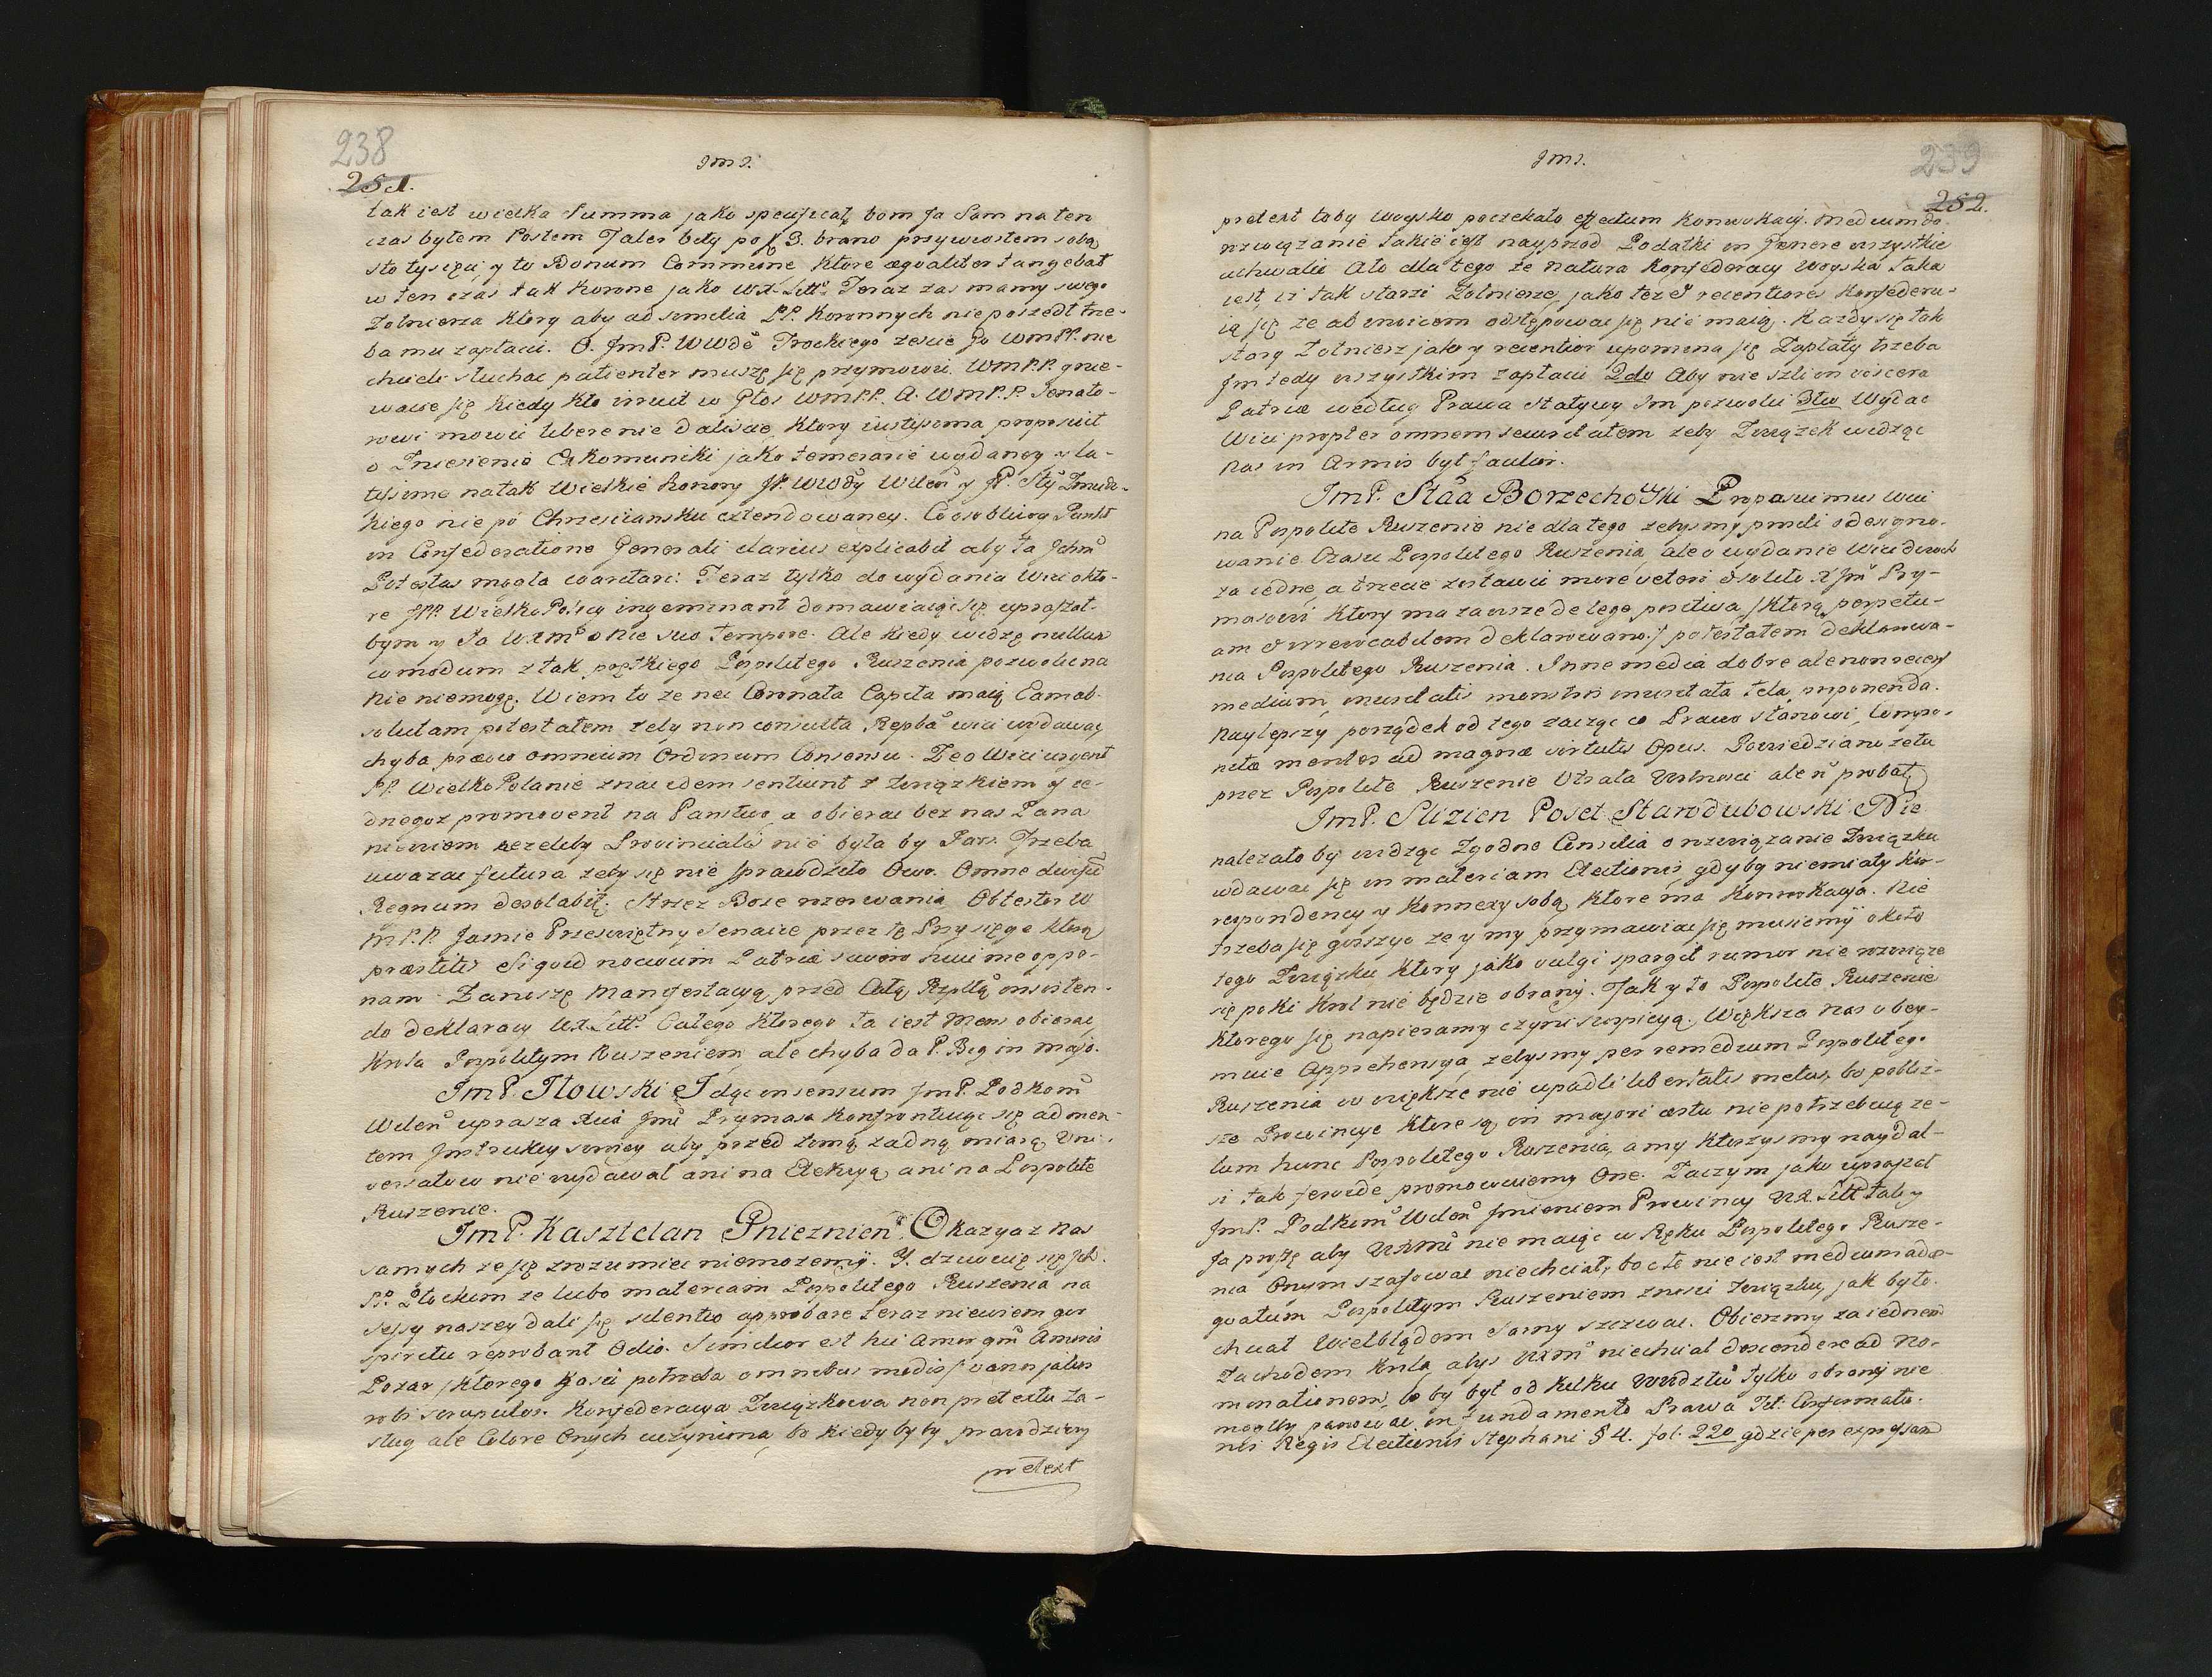 238
251.
Jm2.
tak iest wielka Summa jako specificat, bom Ja Sam na ten
czas bytem Postem Taler bity po f 3. brano przywiostem sobą
sto tysięcy y to Bonum Commune, Ktore æqualiter tangebat
w ten czas tak Korone jako WX. Litto Teraz zas mamy swego
Zotnierza Ktory aby ad similia PP. Koronnych nie poszedt trze-
ba mu zaptacic. O. JmP. WWde Trockiego zescie Go WmPP. nie
chcieli stuchac patienter muszę się przymowic. WMPP. gnie-
wacie się Kiedy Kto irruit w Gtos WMPP. A. WMPP. Senato-
rowi mowic libere nie daliscie, Ktory iustissima proposuit
o Zniesienie Exkomuniki jako temerarie wydaney y la-
tissime na tak Wielkie honory JP. Wwody Wilen y JP. Sty Zmudz-
Kiego nie po Chrzescianksu extendowaney. Co osobliwy Punkt
in Confederatione Generali clarius explicabit aby ta Ichm
Potestas mogta coarctari. Teraz tylko do wydania Wici okto-
re JPP. Wielko Polscy ingeminant domawiaiąc się upraszat-
bym y Ja WXmo o nie suo tempore. Ale Kiedy widzę nullum
comodum z tak prętkiego Pospolitego Ruszenia pozwolic na
Nie niemogę. Wiem to ze nec Coronata Capita maią Eam ab-
solutam potestatem zeby non consulta Repba wici wydawac
chyba prævio omnium Ordinum Consensu. Ze o Wici urgent
PP. Wielko Polanie znac idem sentiunt z Związkiem y ie-
dnegoz promovent na Panstwo, a obierac bez nas Pana
niewiem iezeliby Provincialis nie byta by Pars. Trzeba
uwazac futura zeby się nie sprawdzito Owo. Omne divisum
Regnum desolabit. Strzez Boze rozerwania Obtestor W
MPP. Jasnie Przeswiętny Senacie przez tę Przysięgę Ktorą
præstitit Si quid nocivum Patriæ scivero huic me oppo-
nam. Zanoszę Manifestacyą przed Catą Rzpltą insisten-
do deklaracy WX. Litto Catego Ktorego ta iest Mens obierac
Krola Pospolitym Ruszeniem, ale chyba da P. Bog in Majo.
JmP. Ilowski Idąc in sensum JmP. Podkom
Wilen uprasza Xcia Jm Prymasa Konfrontuiąc się ad men-
tem Instrukcy swoiey aby przed zimą zadną miarą Uni-
versatow nie wydawat ani na Elekcyą ani na Pospolite
Ruszenie.
JmP. Kasztelan Gnieznien. Okazya z nas
samych ze się zrozumiec niemozemy. Y. dziwuię się Ich.
PP. Ptockim ze lubo materiam Pospolitego Ruszenia na
sessy naszey dali się silentio approbare teraz niewiem quo
spiritu reprobant Odio. Similior est hic Amor qm Amoris
Pozar /Ktorego Gasic potrzeba omnibus modis/
robi scrupulos. Konfederacya Związkowa non pretextu za-
stug ale Colore Onych uczyniona, bo Kiedy byby prawdziwy
pretext
239
252.
Jm2.
pretext toby woysko poczekato effectum Konwokacy. Medium do
rozwiązanie takie iest nayprzod Podatki in Genere wszystkie
uchwalic Ato dla tego ze natura Konfederacy woyska taka
iest, iz tak starzi Zotnierze, jako tez & recentiores Konfederu-
ią się ze ab invicem odstępowac się nie maią. Kazdy się tak
stary Zotniersz jako y recentior upomina się Zaptaty trzeba
Im tedy wszystkim zaptacic 2do Aby nie szli in viscera
Patriæ wedtug Prawa Statywy Im pozwolic 3tio Wydac
Wici propter omnem securitatem zeby Związek widząc
nas in Armis byt faulior.
JmP. Staa Borzechowski Proposuimus Wici
na Pospolite Ruszenie nie dla tego zebysmy prosili o designo-
wanie Czasu Pospolitego Ruszenia, ale o wydanie Wici dwoch
za iedne, a trzecie zostawic more veteri & solito X Jm Pry-
masowi Ktory ma zawsze de lege positiva /Ktorą perpetu-
am & irrevocabilem deklarowano./ potestatem deklarowa-
nia Pospolitego Ruszenia. Inne media dobre ale non sciens
medium, inusitatis monstris inusitata tela imponenda.
Naylepszy porządek od tego zacząc co Prawo stanowi, Compo-
nite mentes ad magnæ virtutis Opus. Powiedziano ze tu
przez Pospolite Ruszenie Utrata Wolnosci ale n probat.
JmP. Slizien Poset Starodubowski Nie
nalezato by widząc Zgodne Consilia o rozwiązanie Związku
wdawac się in materiam Elections, gdyby niemiaty Kor-
respondency y Konnexy sobą Ktore ma Konwokacya. Nie
trzeba się gorszyc ze y my przymawiac się musiemy okoto
tego Związku Ktory jako vulgi spargit rumor nie rozwiąze
się poki Krol nie będzie obrany. Tak y to Pospolite Ruszenie
Ktorego się napieramy czyni suspicyą. Większa nas obey-
muie Apprehensya zebysmy per remedium Pospolitego
Ruszenia w większe nie upadli libertatis metus, bo pobliz-
sze Prowincye Ktore są in majori æstu nie potrzebuią ze-
lum hunc Pospolitego Ruszenia, a my Ktorzysmy naydal-
si tak fervide promowuiemy One. Zaczym jako upraszat
JmP. Podkom Wilen Imieniem Prowincy WX. Litt tak y
Ja proszę aby WXMc nie maiąc w Ręku Pospolitego Rusze-
nia Onym szafowac niechciat, bo to nie iest medium adæ-
quatum Pospolitym Ruszeniem znosic Związku, jak byto.
chciat Wielbtądem Sarny szczwac. Obierzmy za iednem
Zachodem Krola, abys WXMc niechciat descendere ad No-
minationem, bo by byt od Kilku Wwdztw tylko obrany nie
mogtby panowac in fundamento Prawa Tit: Confirmatio-
nis Regis Electionis Stephani § 4. fol. 220 gdzie per expressam